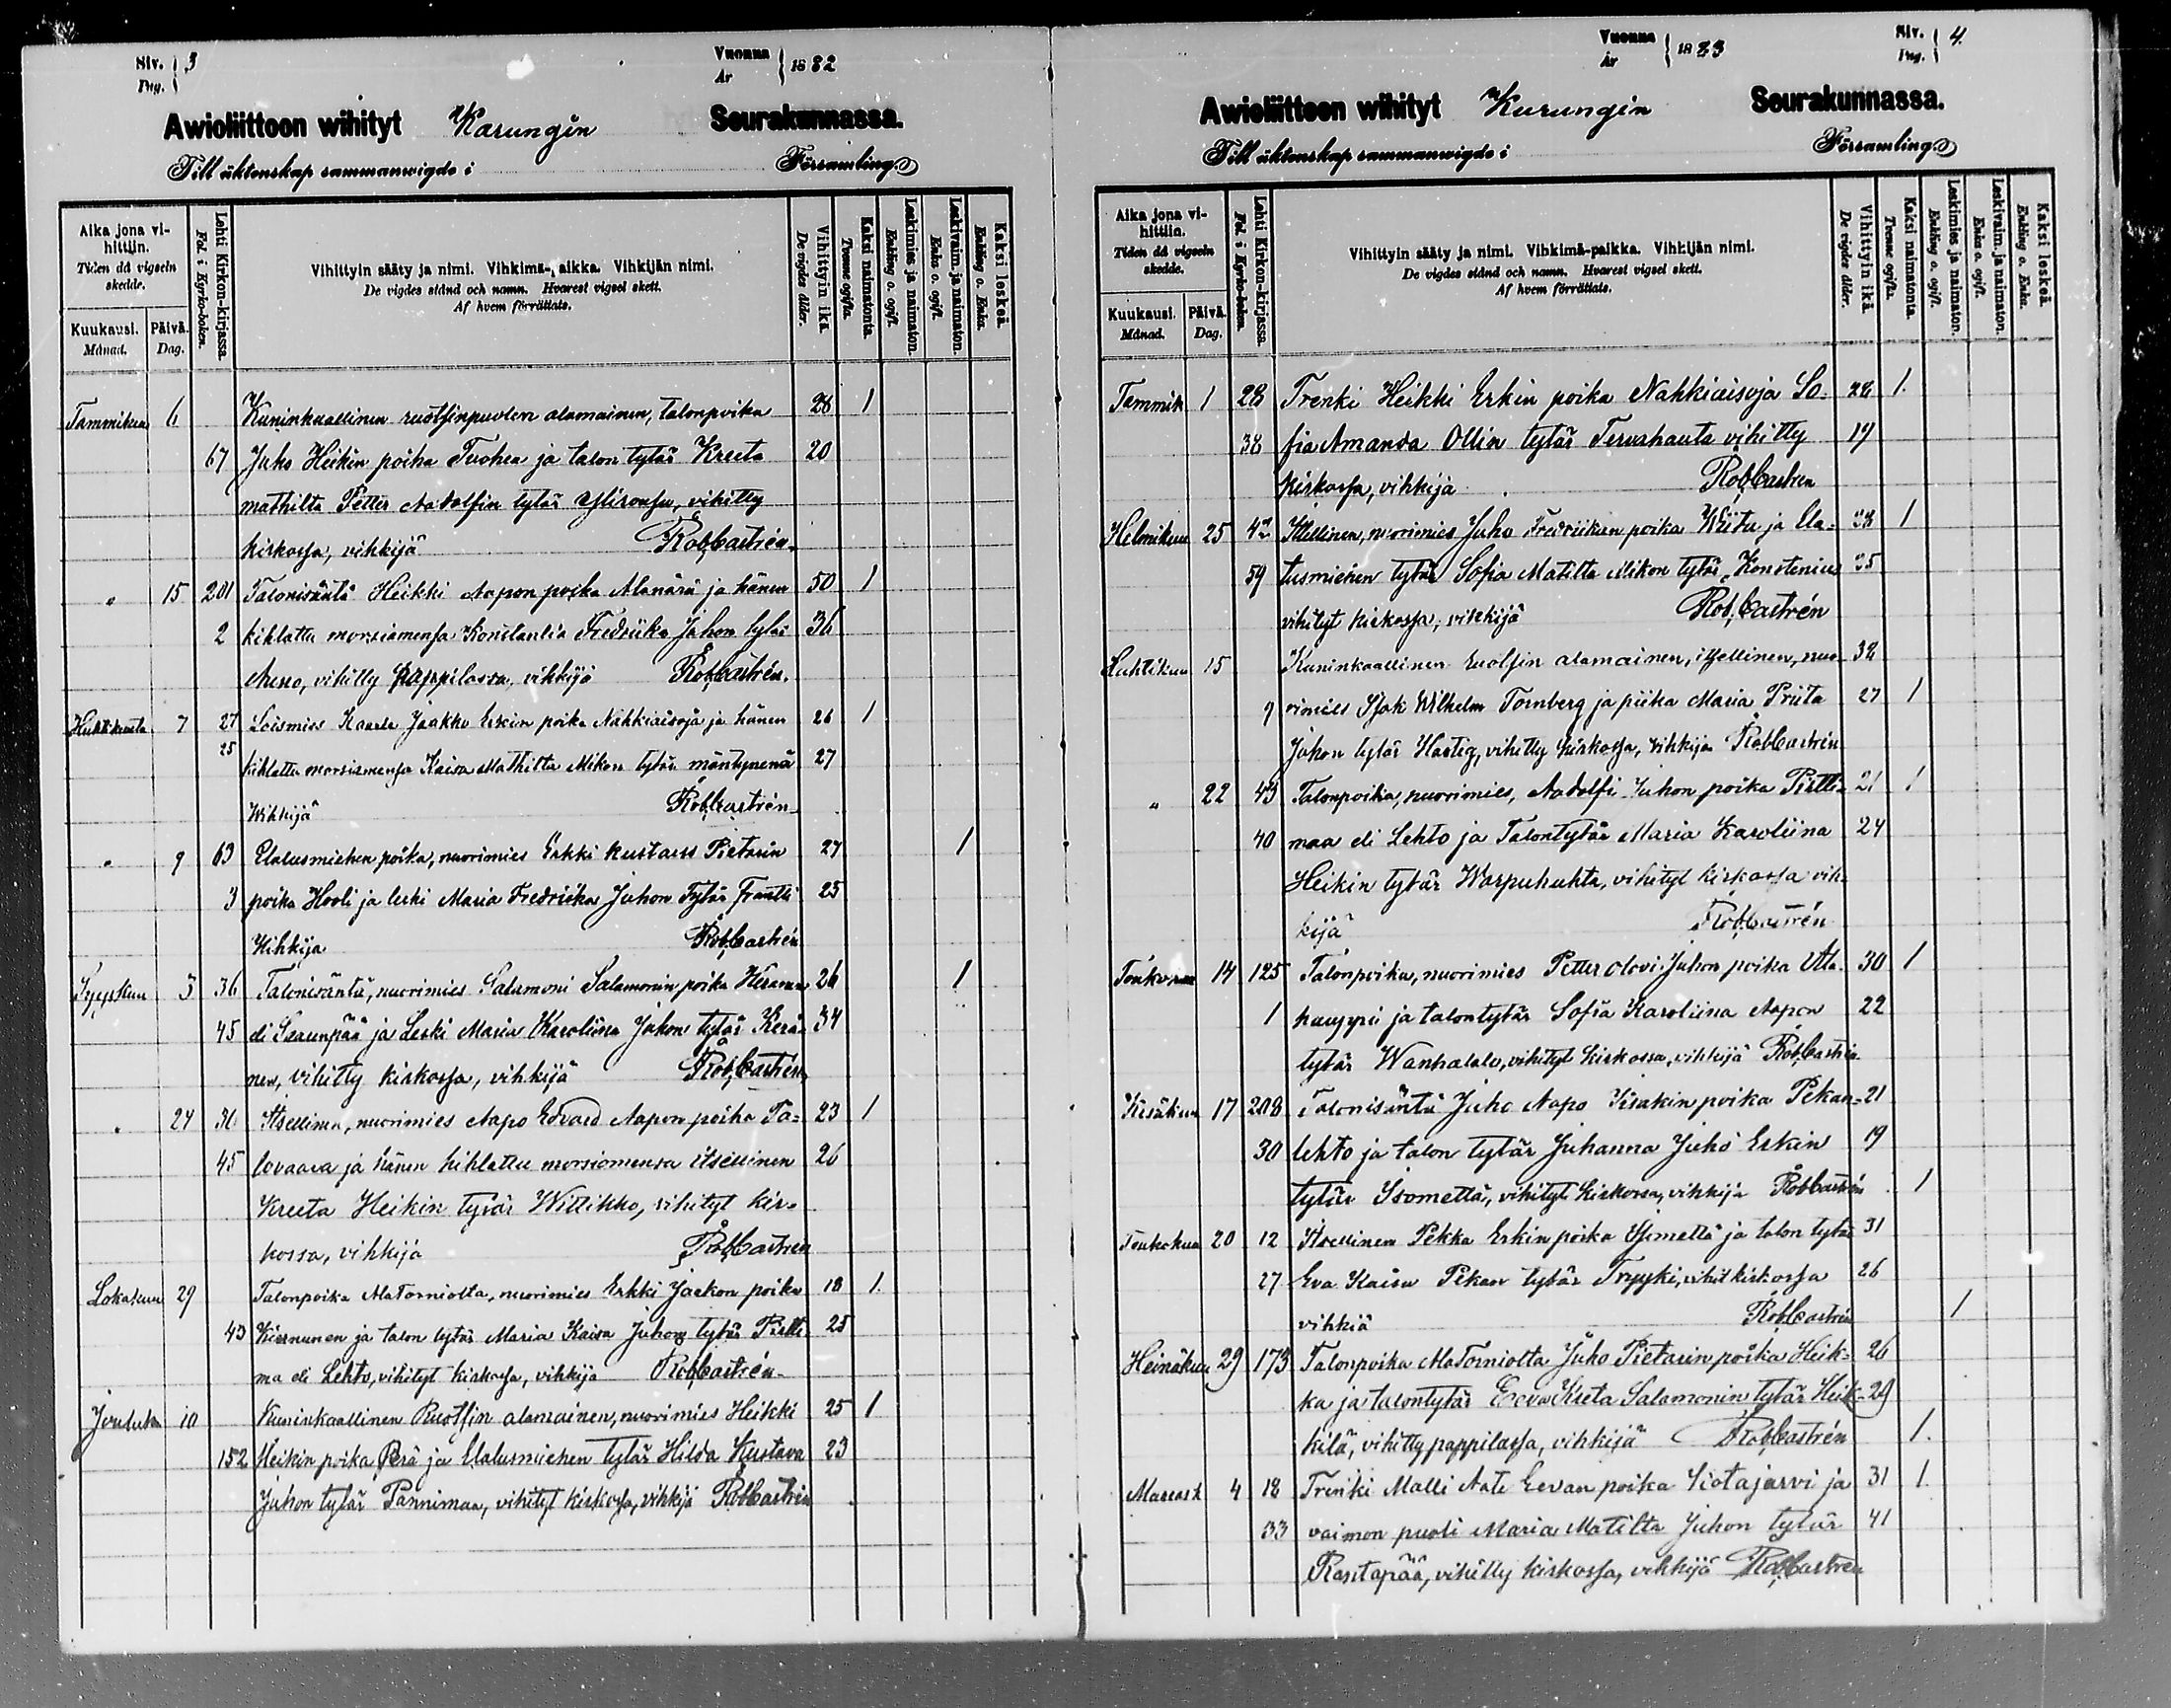 Siv. 3
Pag.
Vuonna 1882
År
Awioliittoon wihityt Karungin Seurakunnassa.
Till äktenskap sammanwigde i Församling
Aika jona vihittiin.
Tiden då vigseln skedde.
Kuukausi. Månad.
Päivä. Dag.
Lehti Kirkon-kirjassa.
Fol. i Kyrko-boken.
Vihittyin sääty ja nimi. Vihkimä-paikka. Vihkijän nimi.
De vigdes stånd och namn. Hvarest vigsel skett.
Af hvem förrättats.
Vihittyin ikä.
De vigdes ålder.
Kaksi naimatonta.
Tvenne ogifta.
Leskimies ja naimaton.
Enkling o. ogift.
Leskivaim. ja naimaton.
Enka o. ogift.
Kaksi leskeä.
Enkling o. Enka.
Tammikuu 6 Kuninkaallinen ruotsinpuolen alamainen, talonpoika 28 1
67 Juho Heikin poika Tuohea ja talon tytär Kreeta 20
mathilta Petter Aadolfin tytär, vihitty
kirkossa, vihkijä Rob. Castrén.
" 15 201 Talonisäntä Heikki Aapon poika Alanärä ja hänen 50 1
2 kihlattu morsiamensa Konstantia Fredriika Johon tytär 36
vihitty pappilassa, vihkijä Rob. Castrén.
Huhtikuuta 7 27 Loismies Kaarle Jaakko Erkin poika Nahkiaisoja ja hänen 26 1
25 kihlattu morsiamensa Kaisa Mathilta Mikon tytär mäntynenä 27
Wihkijä Rob. Castrén
" 9 63 Elatusmiehen poika, nuorimies Erkki Kustavs Pietarin 27 1
3 poika Hooli ja leski Maria Fredriika Juhon Tytär Frantti 25
Wihkijä Rob. Castrén
Syyskuu 3 36 Talonisäntä, nuorimies Salamoni Salamonin poika 26 1
45 eli ja Leski Maria Karoliina Johon tytär Kerä- 34
nen, vihitty kirkossa, vihkijä Rob. Castrén
" 24 36 Itsellinen, nuorimies Aapo Edvard Aapon poika Ta- 23 1
45 lovaara ja hänen kihlattu morsiamensa itsellinen 26
Kreeta Heikin tytär Wittikko, vihityt kir-
kossa, vihkijä Rob. Castrén
Lokakuu 29 Talonpoika AlaTorniolta, nuorimies Erkki Jaakon poika 18 1.
43 Kiernunen ja talon tytär Maria Kaisa Juhon tytär Pirtti- 25
ma eli Lehto, vihityt kirkossa, vihkijä Rob. Castrén.
Jouluku 10 Kuninkaallinen Ruotsin alamainen, nuorimies Heikki 25 1
152 Heikin poika Perä ja Elatusmiehen tytär Hilda Kustava 23
Juhon tytär Pannimaa, vihityt kirkossa, vihkijä Rob. Castrén
Siv. 4.
Pag.
Vuonna 1883
År
Awioliittoon wihityt Karungin Seurakunnassa.
Till äktenskap sammanwigde i Församling
Aika jona vihittiin.
Tiden då vigseln skedde.
Kuukausi. Månad.
Päivä. Dag.
Lehti Kirkon-kirjassa.
Fol. i Kyrko-boken.
Vihittyin sääty ja nimi. Vihkimä-paikka. Vihkijän nimi.
De vigdes stånd och namn. Hvarest vigsel skett.
Af hvem förrättats.
Vihittyin ikä.
De vigdes ålder.
Kaksi naimatonta.
Tvenne ogifta.
Leskimies ja naimaton.
Enkling o. ogift.
Leskivaim. ja naimaton.
Enka o. ogift.
Kaksi leskeä.
Enkling o. Enka.
Tammik 1 28 Trenki Heikki Erkin poika Nahkiaisoja So- 28 1.
38 fia Amanda Ollin tytär Tervahauta vihitty 19
kirkossa, vihkijä Rob. Castrén
Helmikuu 25 Itsellinen, nuorimies Juho Fredriikan poika Wiita ja Ela- 1
59 tusmiehen tytär Sofia Matilta Mikon tytär Konstenius 35
vihityt kirkossa, vihkijä Rob. Castrén
Huhtikuu 15 Kuninkaallinen ruotsin alamainen, itsellinen, nuo- 32
9 rimies Isak Wilhelm Tornberg ja piika Maria Priita 27 1
Johon tytär Hartig, vihitty kirkossa, vihkijä Rob. Castrén
" 22 43 Talonpoika, nuorimies, Aadolfi Juhon poika Pirtti- 21 1
40 maa eli Lehto ja Talontytär Maria Karoliina 24
Heikin tytär Warpuhuhta, vihityt kirkossa vih-
kijä Rob. Castrén
Toukokuu 14 125 Talonpoika, nuorimies Petter Olovi Juhon poika Ala- 30 1
1 kauppi ja talontytär Sofia Karoliina Aapon 22
tytär Wanhatalo, vihityt kirkossa, vihkijä Rob. Castrén
Kesäkuu 17 208 Talonisäntä Juho Aapo Iisakin poika Pekan- 21
30 lehto ja talon tytär Juhanna Juho Erkin 19
tytär Isometsä, vihityt kirkossa, vihkijä Rob. Castrén 1
Toukokuu 20 12 Itsellinen Pekka Erkin poika Isometsä ja talon tytär 31
27 Eva Kaisa Pekan tytär Fryyki, vihit kirkossa 26
vihkiä Rob. Castrén 1
Heinäkuu 29 173 Talonpoika AlaTorniolta Juho Pietarin poika Heik- 26
ka ja talontytär Eeva Kreeta Salamonin tytär Heik- 29
kilä, vihitty pappilassa, vihkijä Rob. Castrén 1.
Marrask 4 18 Trenki Malli Aate Eevan poika Kiotajärvi ja 31 1.
33 vaimon puoli Maria Matilta Juhon tytär 41
Rasitapää, vihitty kirkossa, vihkijä Rob. Castrén